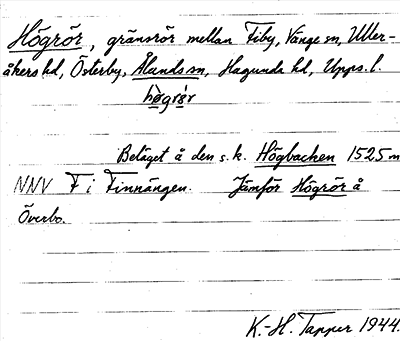 Högrör, gränsrör mellan Fiby, Vänge sn, Uller-
åkers hd, Österby, Ålands sn, Hagunda hd, Upps. l.
högrör
Beläget å den s.k. Högbacken 1525 m
NNV F i Finnängen. Jämför Högrör å
Överbo.
K.-H. Tapper 1944.